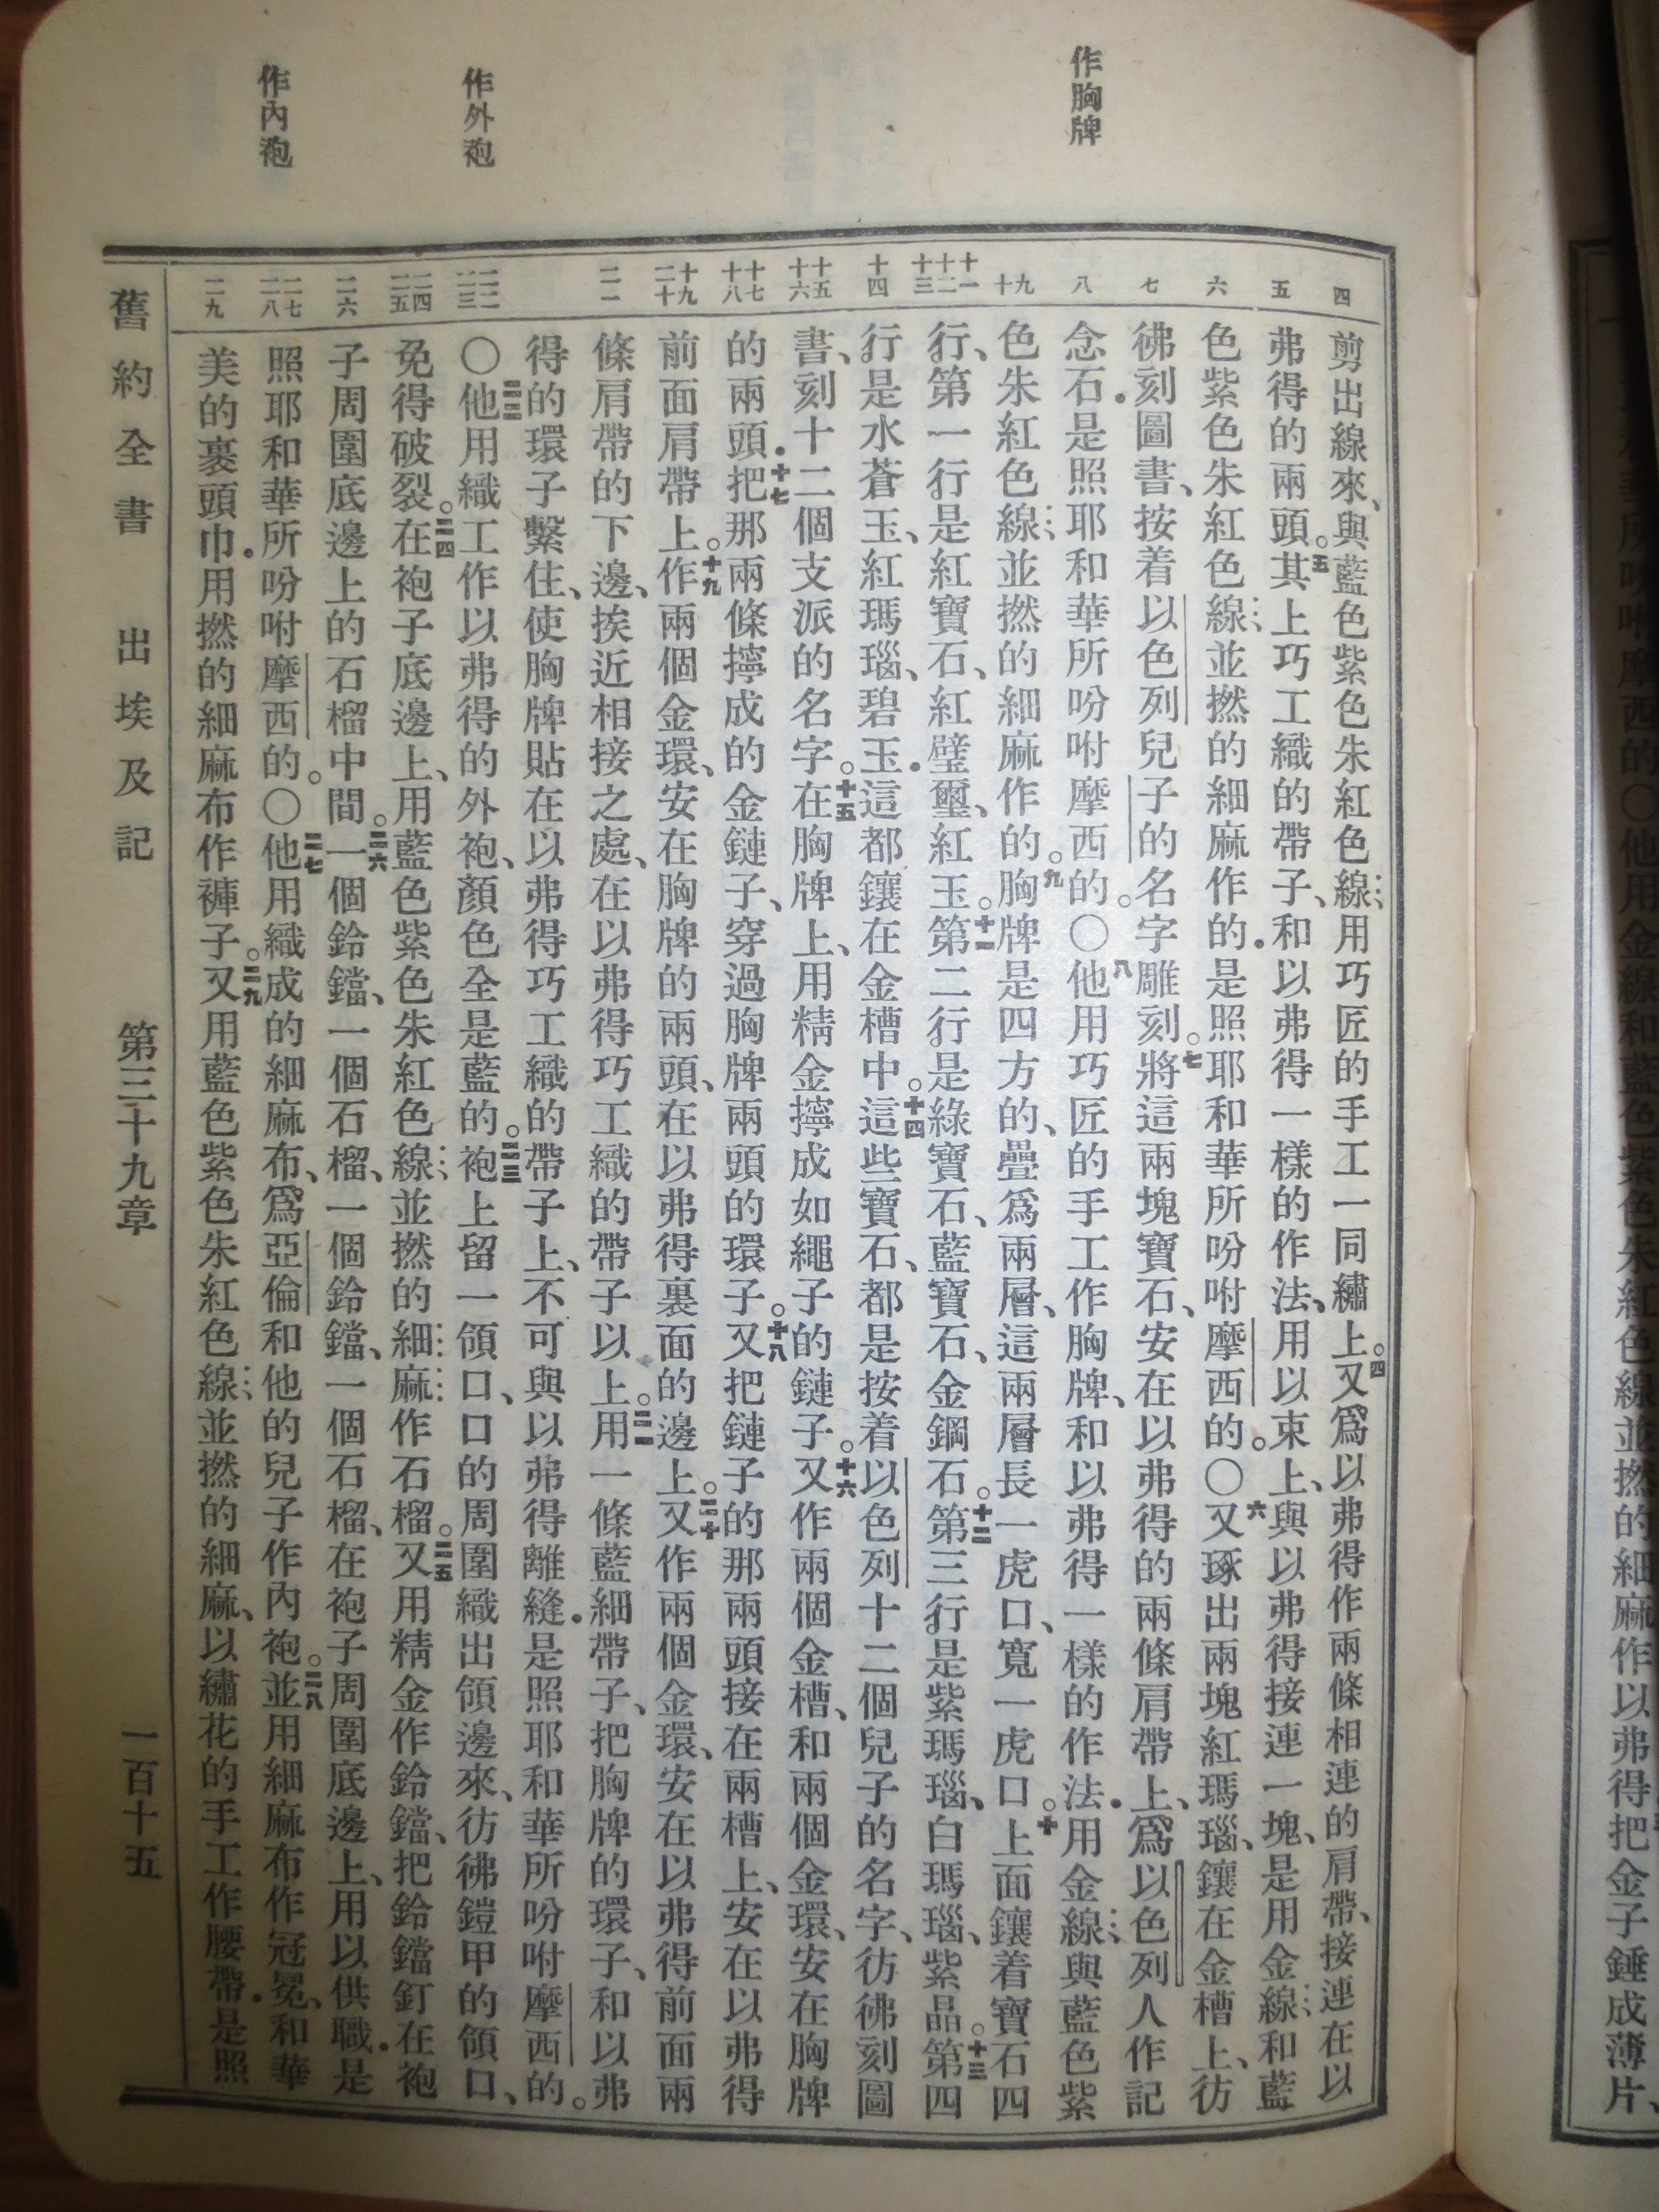 作胸牌
作外袍
作內袍
四
五
六
七
八
九 十
十一 十二 十三
十四
十五 十六
十七 十八
十九 二十
二一
二二 二三
二四 二五
二六
二七 二八
二九
剪出線來、與藍色紫色朱紅色線、用巧匠的手工一同繡上。四又爲以弗得作兩條相連的肩帶、接連在以
弗得的兩頭。五其上巧工織的帶子、和以弗得一樣的作法、用以束上、與以弗得接連一塊、是用金線、和藍
色紫色朱紅色線並撚的細麻作的．是照耶和華所吩咐摩西的。〇六又琢出兩塊紅瑪瑙、鑲在金槽上、彷
彿刻圖書、按着以色列兒子的名字雕刻。七將這兩塊寶石、安在以弗得的兩條肩帶上、爲以色列人作記
念石．是照耶和華所吩咐摩西的。〇八他用巧匠的手工作胸牌、和以弗得一樣的作法．用金線與藍色紫
色朱紅色線並撚的細麻作的。九胸牌是四方的、疊爲兩層、這兩層長一虎口、寬一虎口。十上面鑲着寶石四
行、第一行是紅寶石、紅璧璽、紅玉。十一第二行是綠寶石、藍寶石、金鋼石。十二第三行是紫瑪瑙、白瑪瑙、紫晶。十三第四
行是水蒼玉、紅瑪瑙、碧玉．這都鑲在金槽中。十四這些寶石、都是按着以色列十二個兒子的名字、彷彿刻圖
書、刻十二個支派的名字。十五在胸牌上、用精金擰成如繩子的鏈子。十六又作兩個金槽、和兩個金環、安在胸牌
的兩頭．十七把那兩條擰成的金鏈子、穿過胸牌兩頭的環子。十八又把鏈子的那兩頭接在兩槽上、安在以弗得
前面肩帶上。十九作兩個金環、安在胸牌的兩頭、在以弗得裏面的邊上。二十又作兩個金環、安在以弗得前面兩
條肩帶的下邊、挨近相接之處、在以弗得巧工織的帶子以上。二一用一條藍細帶子、把胸牌的環子、和以弗
得的環子繫住、使胸牌貼在以弗得巧工織的帶子上、不可與以弗得離縫．是照耶和華所吩咐摩西的。
〇二二他用織工作以弗得的外袍、顏色全是藍的。二三袍上留一領口、口的周圍織出領邊來、彷彿鎧甲的領口、
免得破裂。二四在袍子底邊上、用藍色紫色朱紅色線並撚的細麻作石榴。二五又用精金作鈴鐺、把鈴鐺釘在袍
子周圍底邊上的石榴中間。二六一個鈴鐺、一個石榴、一個鈴鐺、一個石榴、在袍子周圍底邊上、用以供職．是
照耶和華所吩咐摩西的。〇二七他用織成的細麻布、爲亞倫和他的兒子作內袍。二八並用細麻布作冠冕、和華
美的裹頭巾．用撚的細麻布作褲子。二九又用藍色紫色朱紅色線並撚的細麻、以繡花的手工作腰帶．是照
舊約全書 出埃及記 第三十九章 一百十五
所吩咐摩西的〇他用金線和藍色紫色朱紅色線並撚的細麻作以弗得把金子錘成薄片、